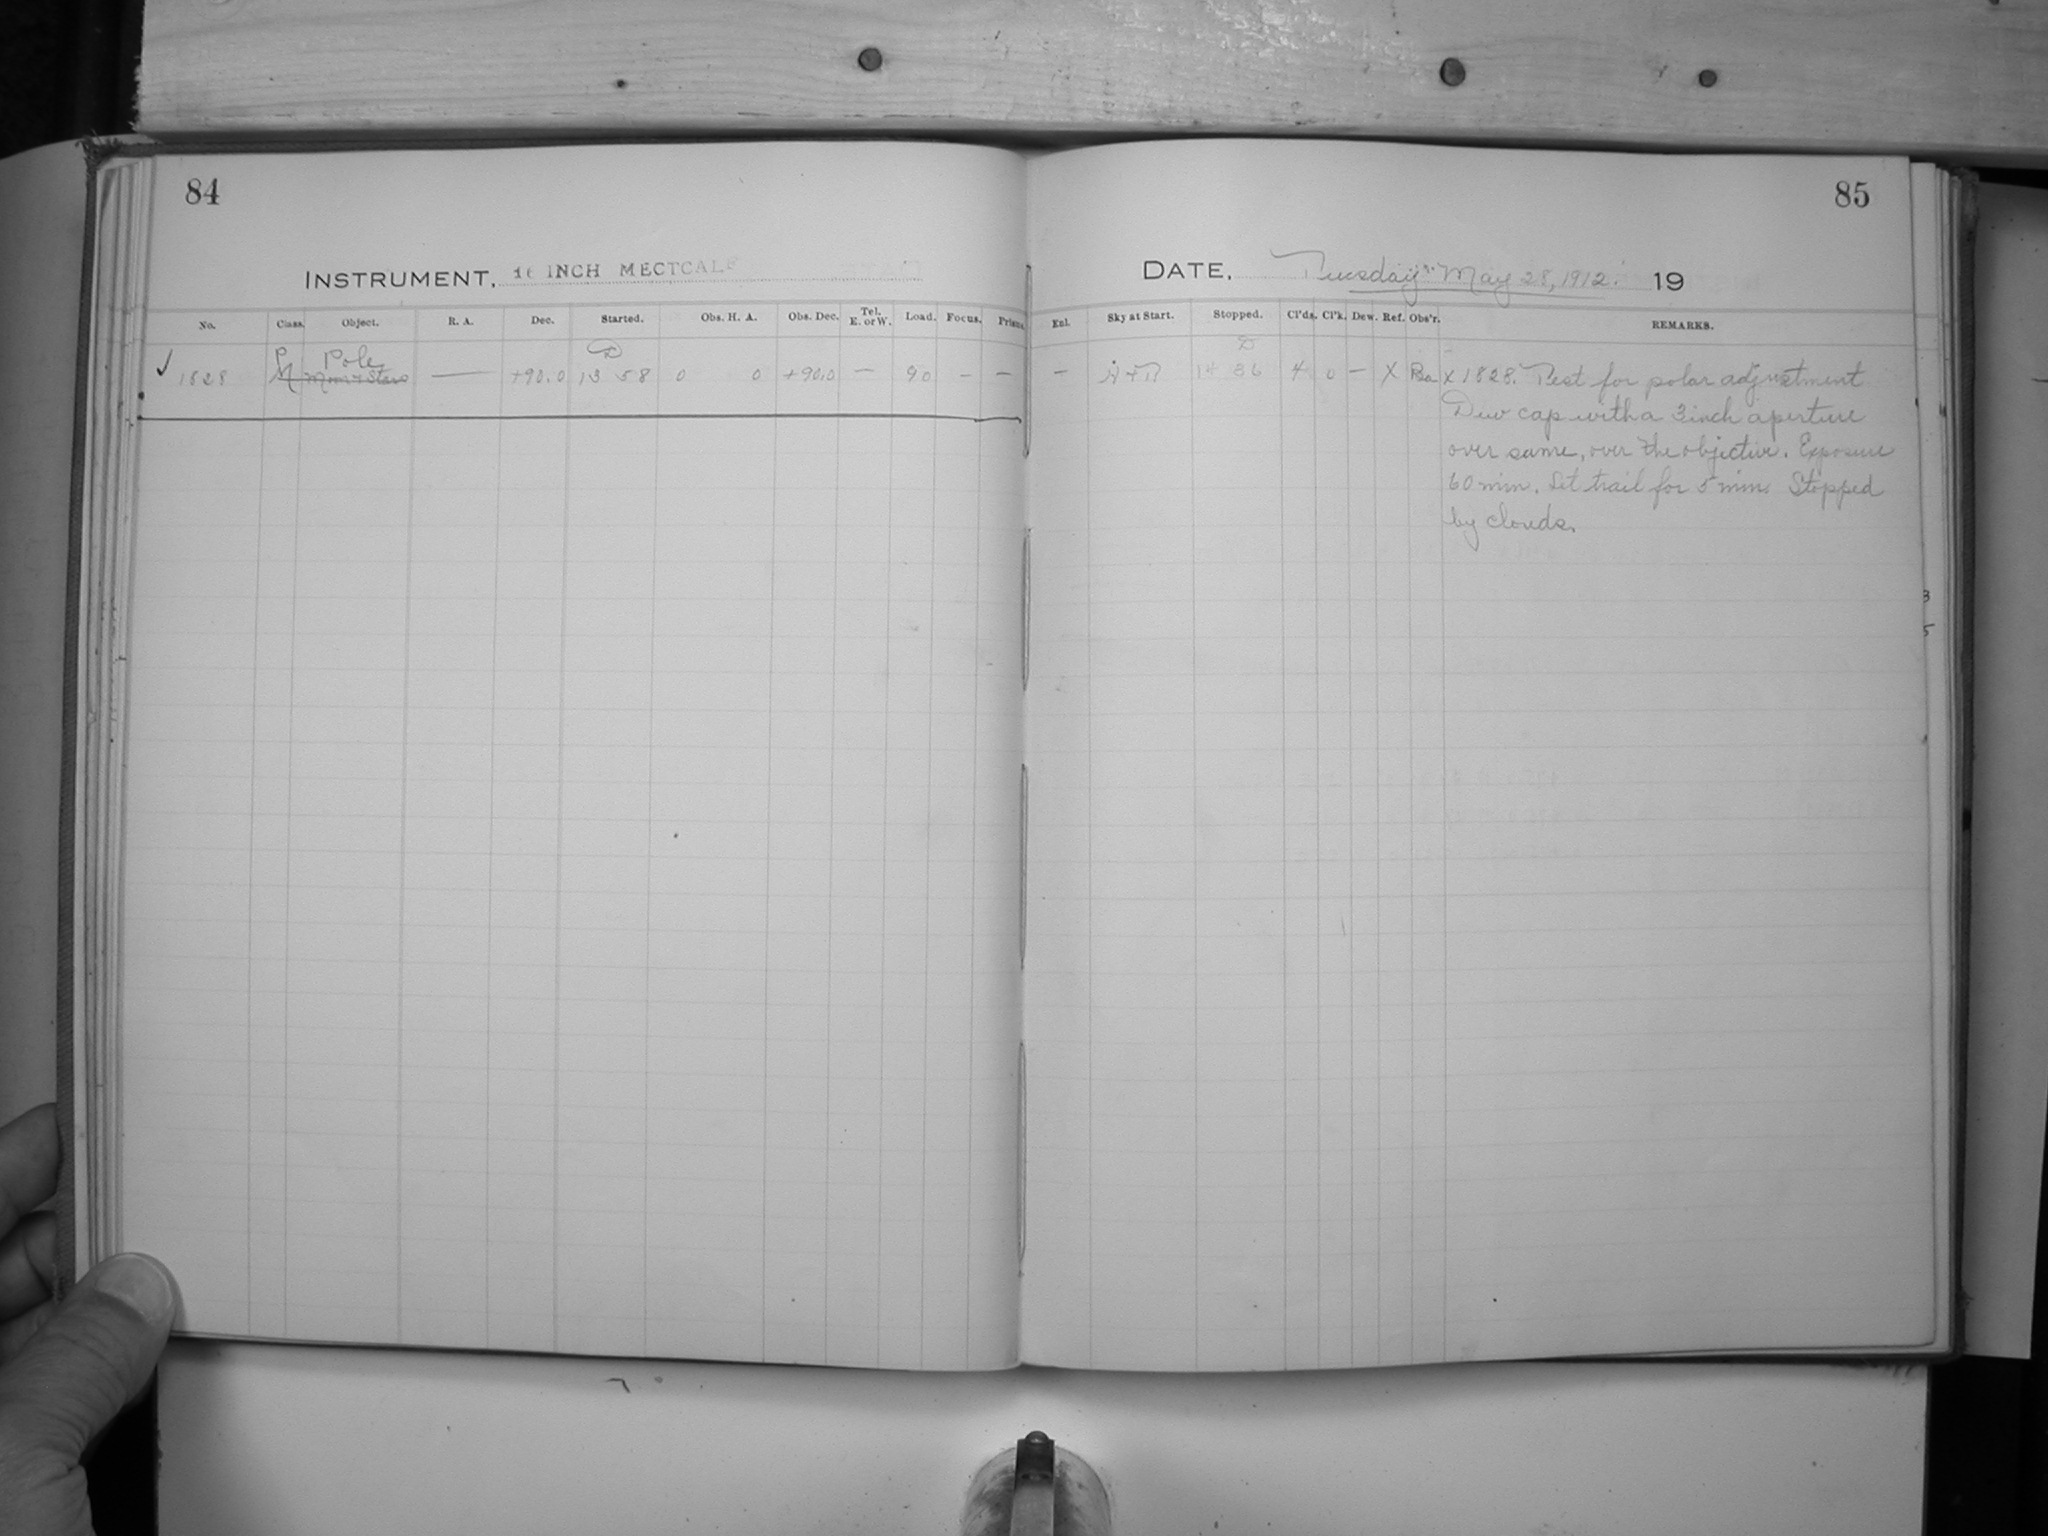 84
INSTRUMENT, 16 INCH MECTCALF
No. Class. Object. R. A. Dec. Started. Obs. H. A. Obs. Dec. Tel. E. or W. Load. Focus. Prism.
Pole
D
✓ 1828 +90.0 13 58 0 0 +90.0 — 90 — —
85
DATE, Tuesday May 28, 1912. 19
Enl. Sky at Start. Stopped. Cl'ds. Cl'k. Dew. Ref. Obs'r. REMARKS.
D
— 14 36 4 0 — X Ba x 1828. Test for polar adjustment
Dew cap with a 3 inch aperture
over same, over the objective. Exposure
60 min. Let trail for 5 min. Stopped
by clouds.
3
5